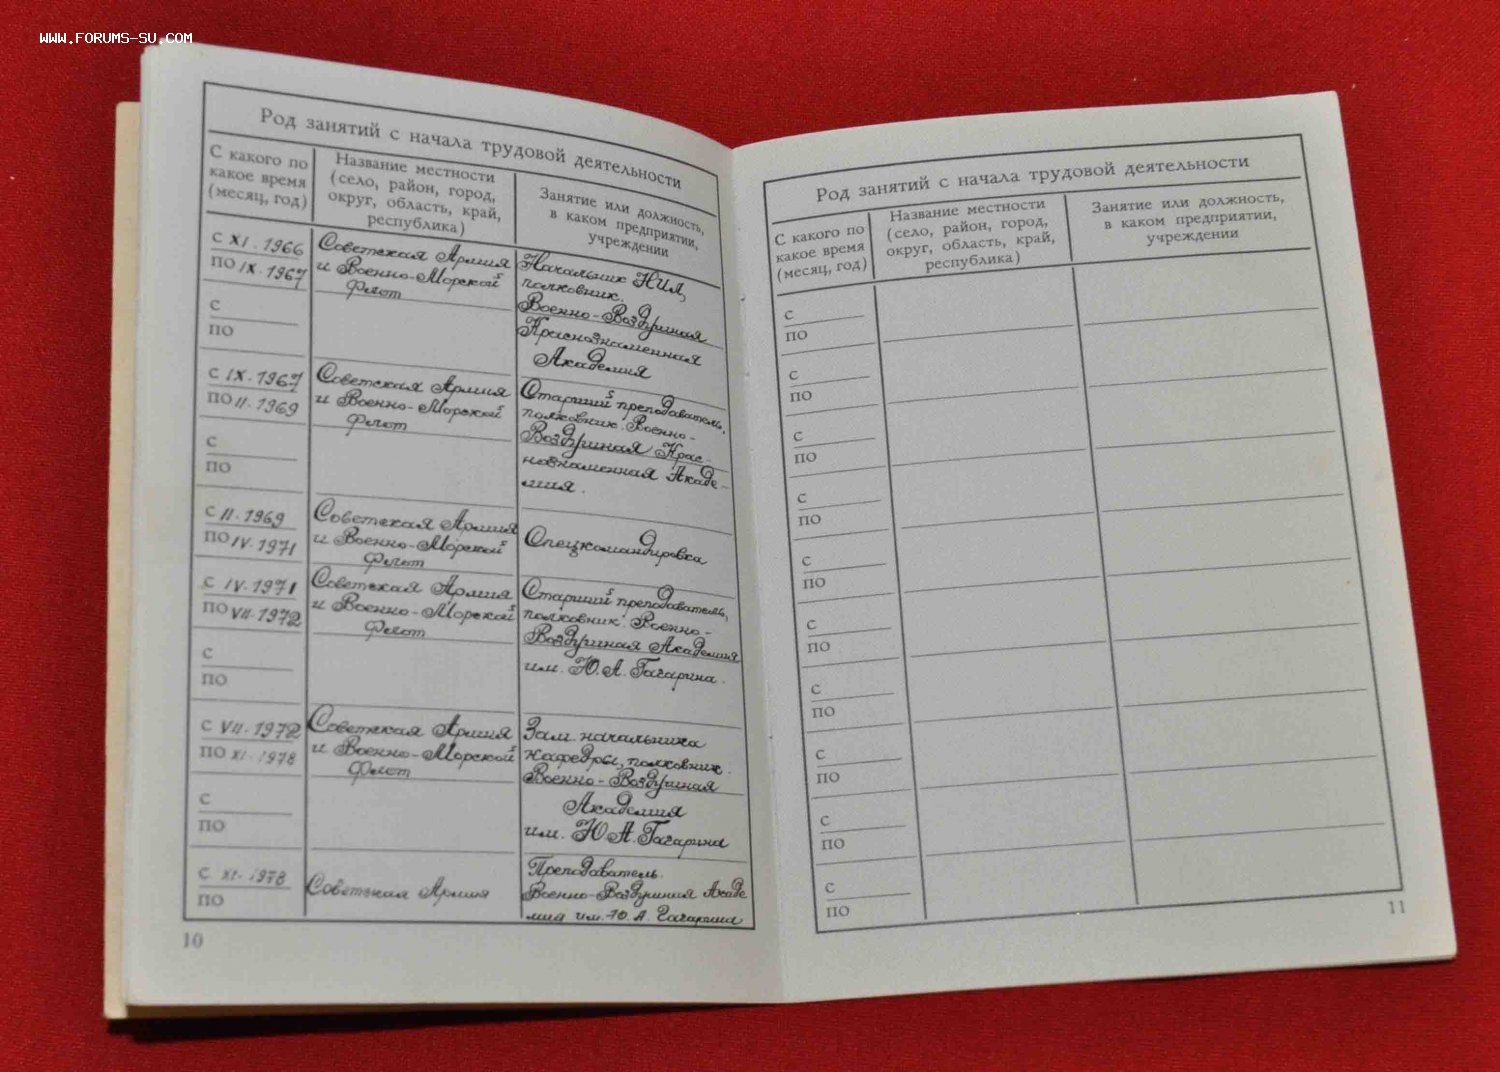 WWW.FORUMS-SU.COM
Род занятий с начала трудовой деятельности
С какого по
какое время
(месяц, год)
Название местности
(село, район, город,
округ, область, край,
республика)
Занятие или должность,
в каком предприятии,
учреждении
с XI. 1966
по IX. 1967
с
по
Советская Армия
и Военно-Морской
Флот
Начальник НИЛ,
полковник.
Военно-Воздушная
Краснознаменная
Академия
с IX. 1967
по II. 1969
с
по
Советская Армия
и Военно-Морской
Флот
Старший преподаватель,
полковник. Военно-
Воздушная Крас-
нознаменная Акаде-
мия.
с II. 1969
по IV. 1971
Советская Армия
и Военно-Морской
Флот
Спецкомандировка
с IV. 1971
по VII. 1972
с
по
Советская Армия
и Военно-Морской
Флот
Старший преподаватель,
полковник. Военно-
Воздушная Академия
им. Ю. А. Гагарина.
с VII. 1972
по XI. 1978
с
по
Советская Армия
и Военно-Морской
Флот
Зам. начальника
кафедры, полковник.
Военно-Воздушная
Академия
им. Ю. А. Гагарина
с XI. 1978
по
Советская Армия
Преподаватель.
Военно-Воздушная Акаде
мия им. Ю. А. Гагарина
10
Род занятий с начала трудовой деятельности
С какого по
какое время
(месяц, год)
Название местности
(село, район, город,
округ, область, край,
республика)
Занятие или должность,
в каком предприятии,
учреждении
с
по
с
по
с
по
с
по
с
по
с
по
с
по
с
по
с
по
с
по
11